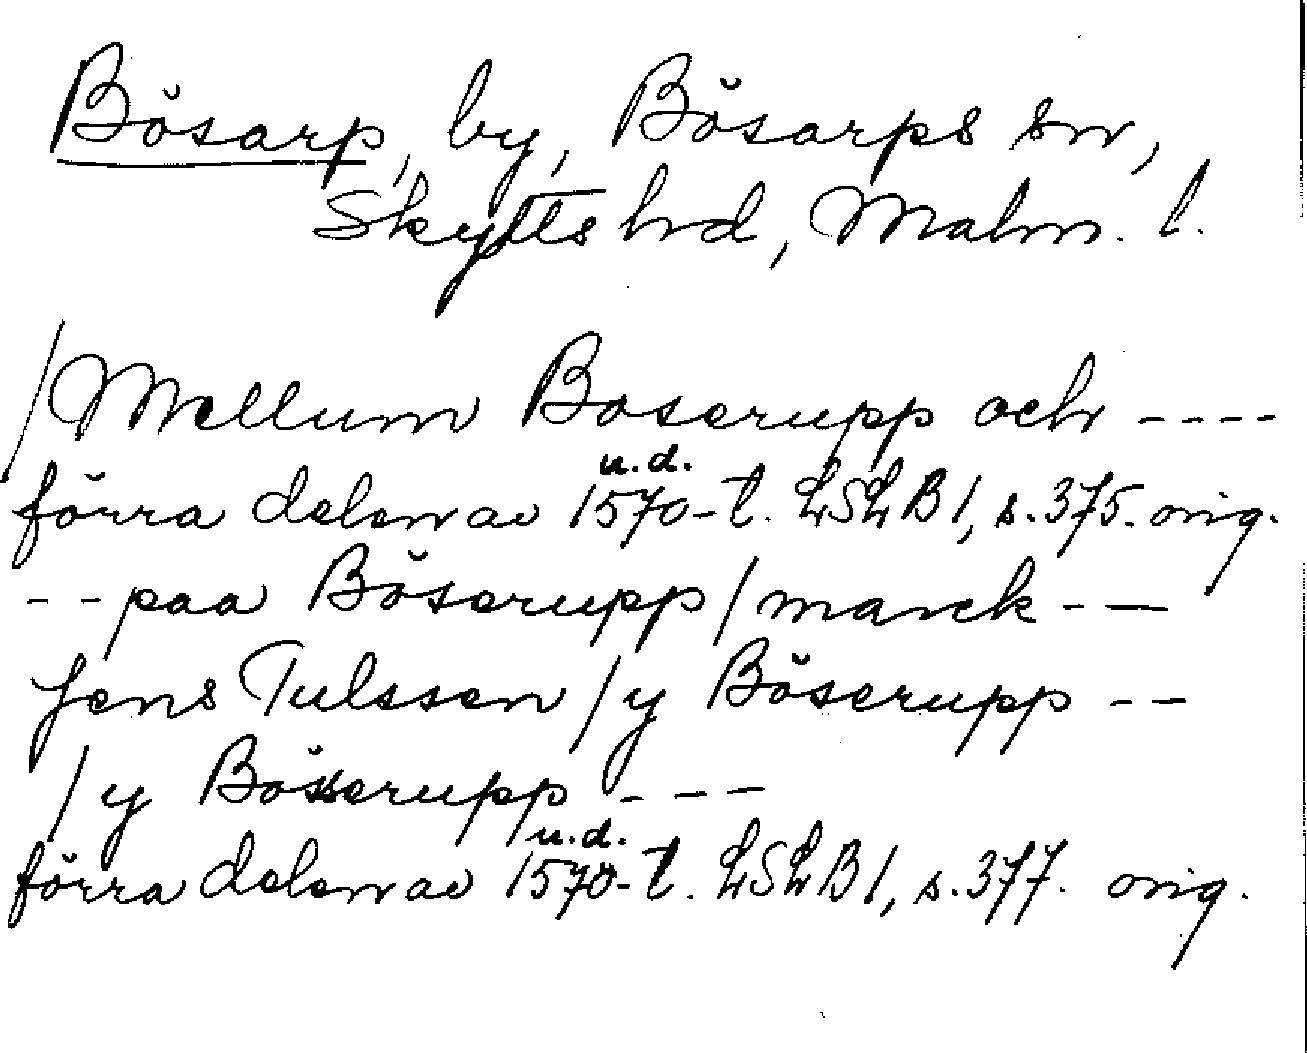 Bösarp, by, Bösarps sn,
Skytts hd, Malm. l.
/Mellum Boserupp och ----
u.d.
förra delen av 1570-t. LSLB1, s.375. orig.
-- paa Böserupp/marck ---
Jens Tulssen /y Böserupp --
/y Böserupp ----
u.d.
förra delen av 1570-t. LSLB1, s.377. orig.